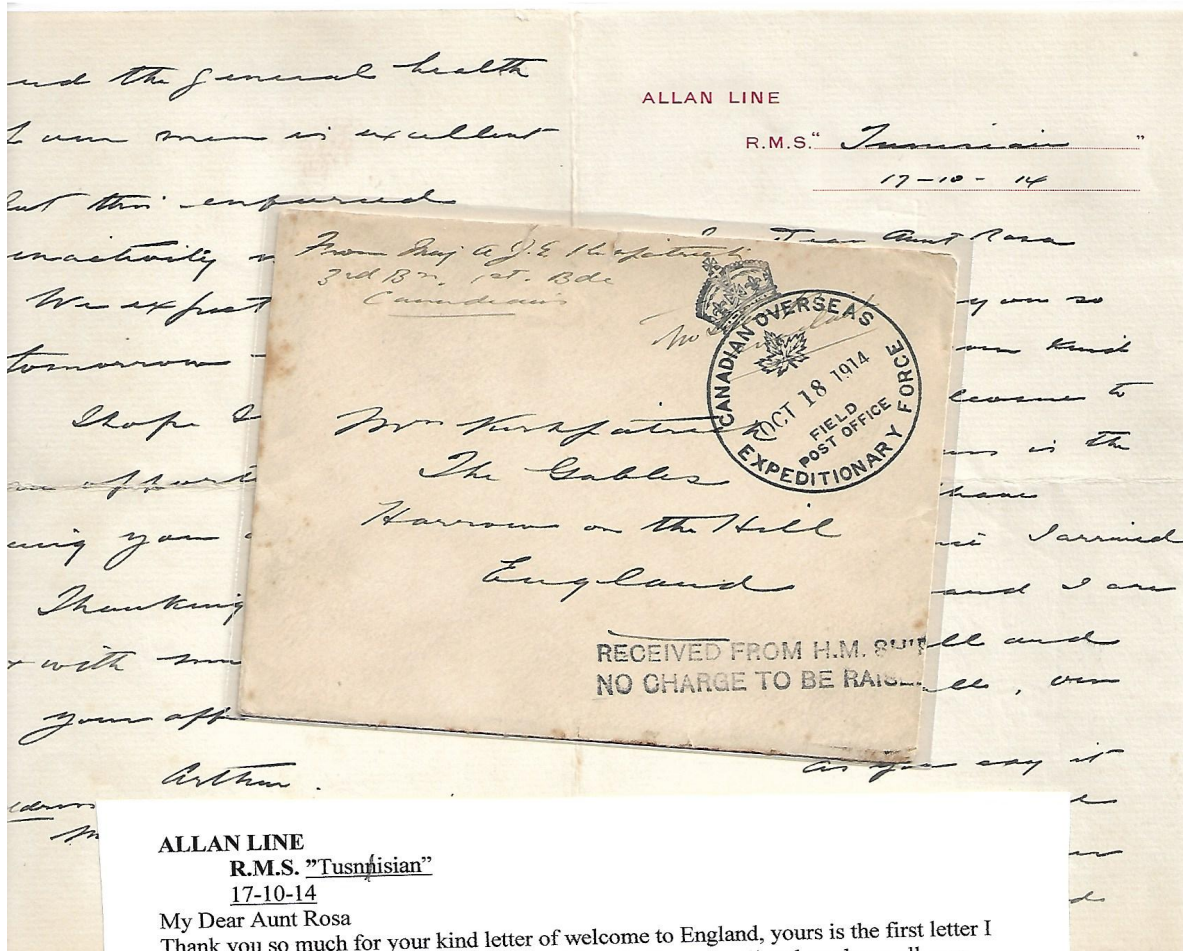 and the general health
of our men is excellent
but this enforced
inactivity
We expect
tomorrow
I hope I
an opport
ing you
Thanking
with
your aff
Arthur.
ALLAN LINE
R.M.S. "Tunisian"
17-10-14
Dear Aunt Rosa
you so
kind
welcome to
is the
I have
I arrived
and I are
well and
well, our
as you say it
From Maj A.J.E Kirkpatrick
3rd Bn. 1st. Bde
Canadians
CANADIAN OVERSEAS
EXPEDITIONARY FORCE
OCT 18 1914
FIELD
POST OFFICE
Mrs Kirkpatrick
The Gables
Harrow on the Hill
England
RECEIVED FROM H.M. SHIP
NO CHARGE TO BE RAISE
ALLAN LINE
R.M.S. "Tusnnisian"
17-10-14
My Dear Aunt Rosa
Thank you so much for your kind letter of welcome to England, yours is the first letter I